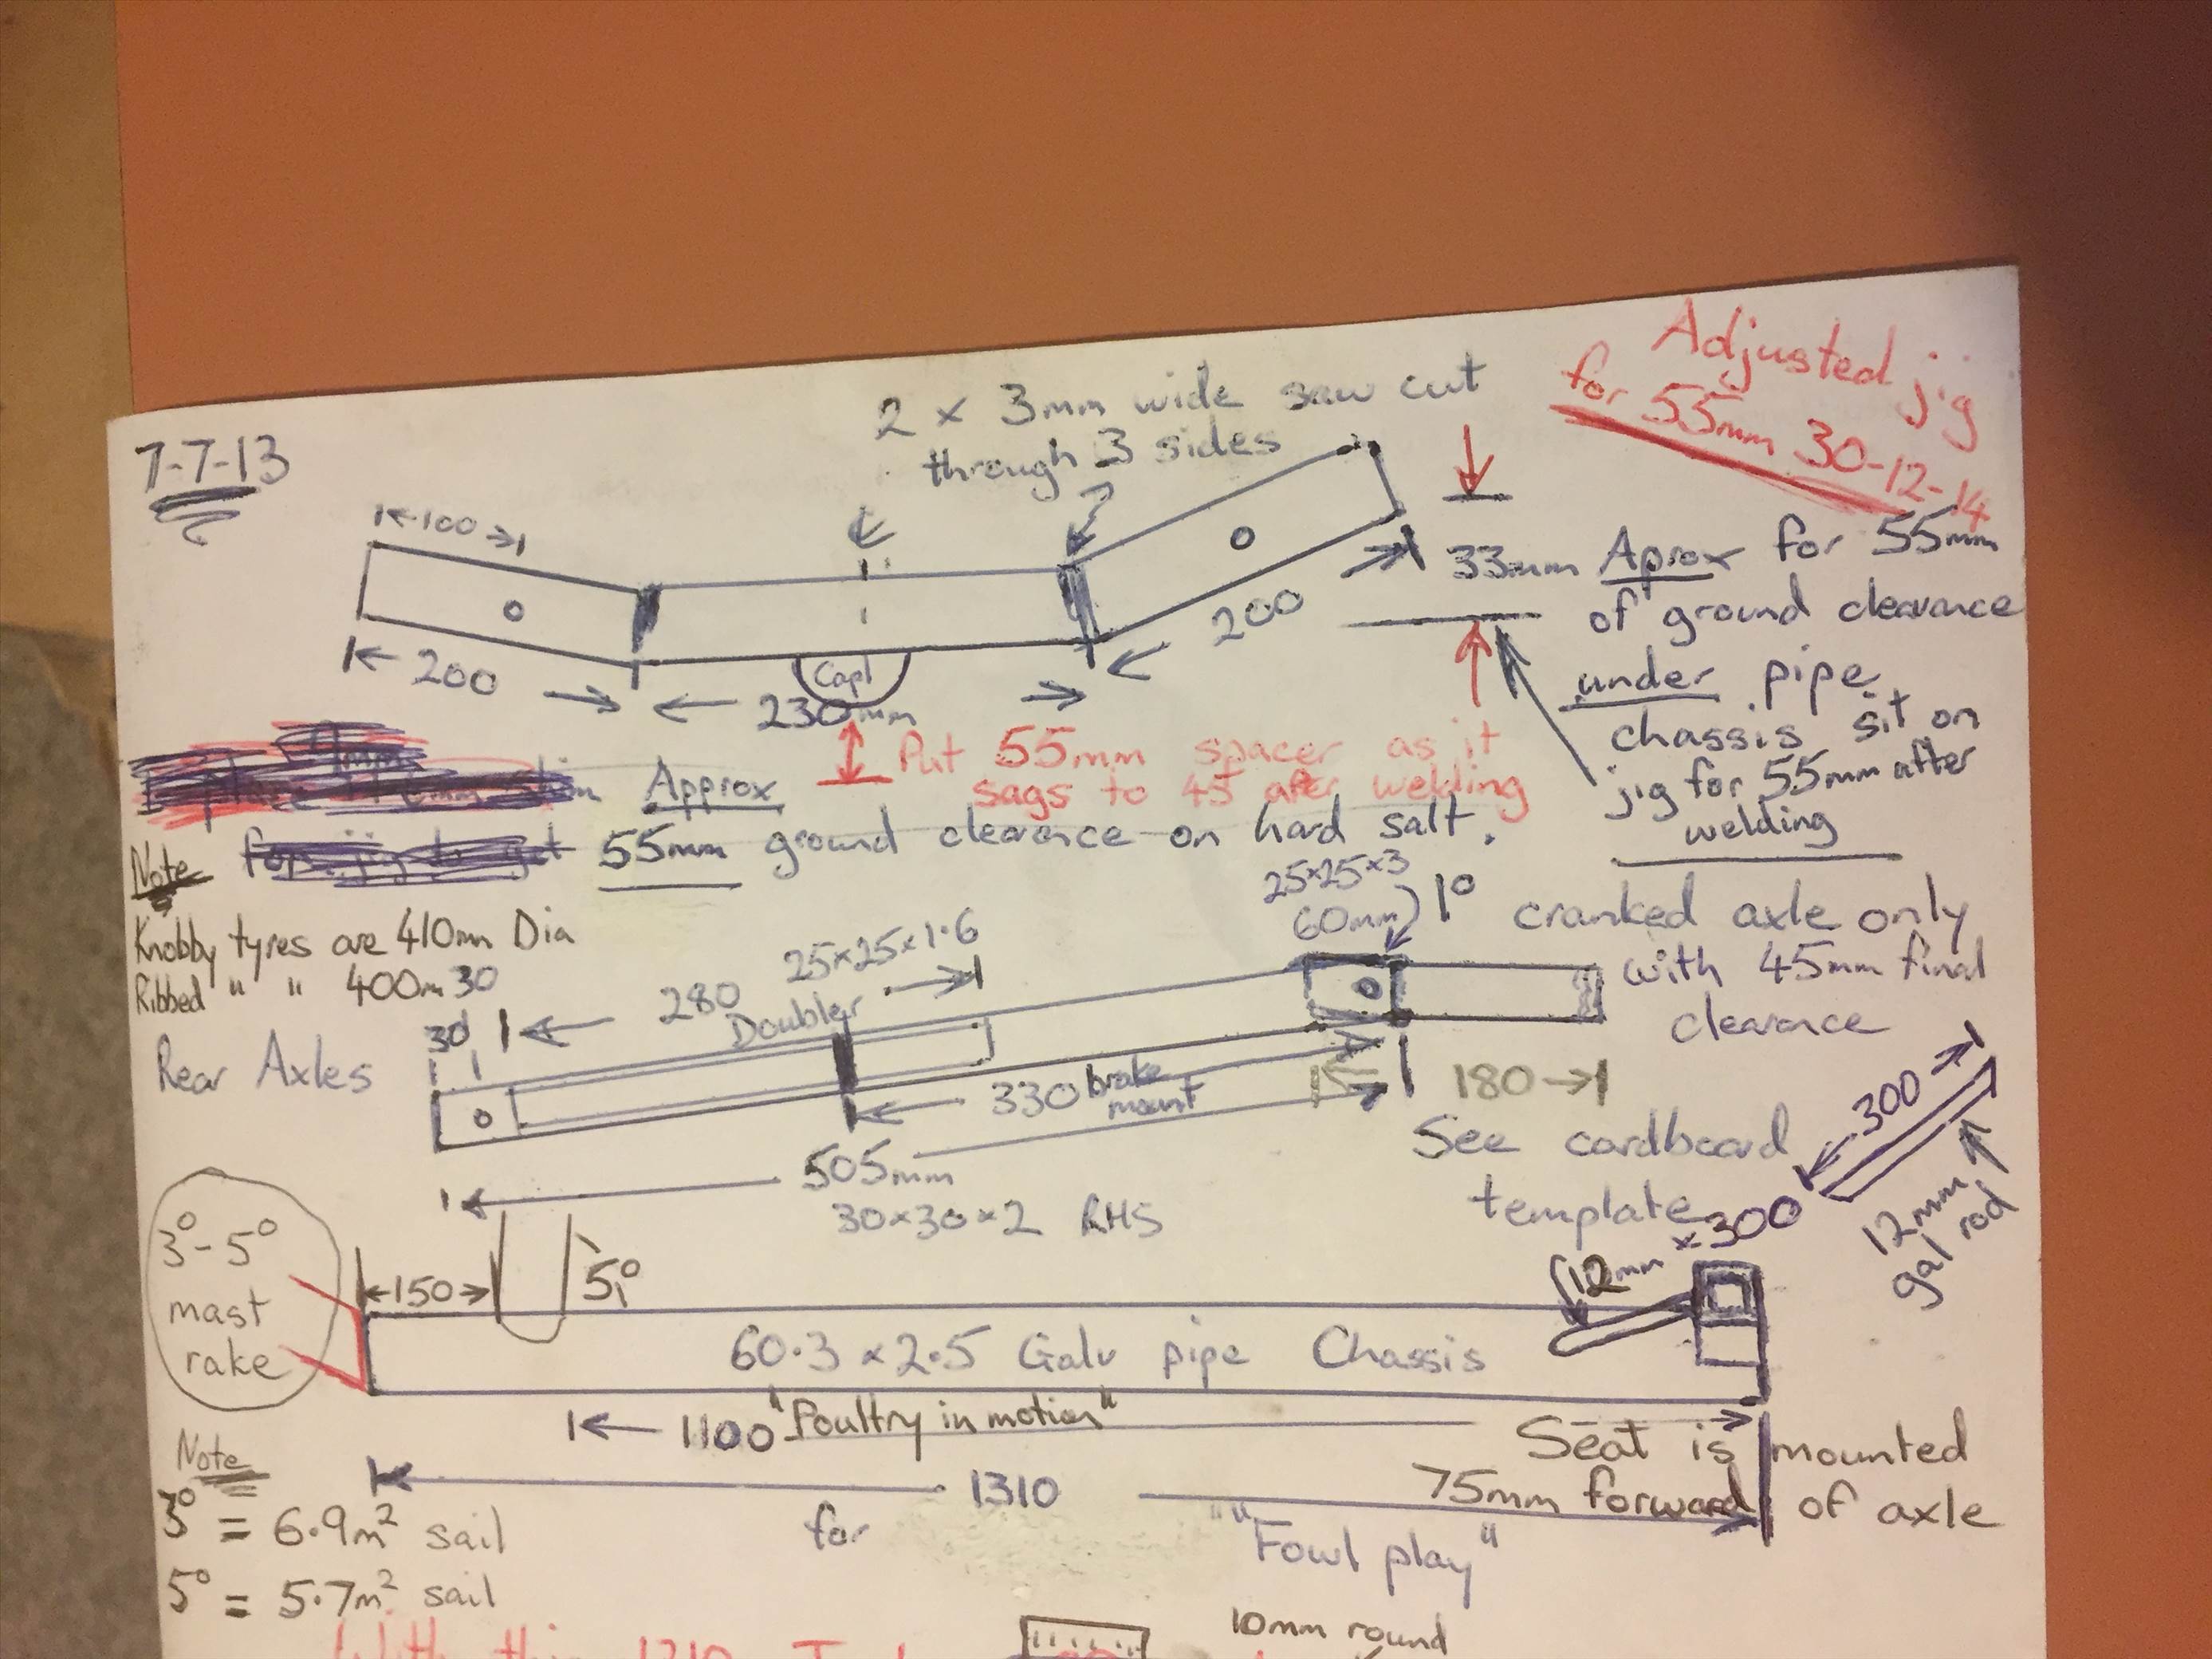 Adjusted jig
for 55mm 30-12-14
7-7-13
2 x 3mm wide saw cut
through 3 sides
100
200
230mm
Capl
200
33mm Aprox for 55mm
of ground clearance
under pipe
chassis sit on
jig for 55mm after
welding
Put 55mm spacer as it
sags to 45 after welding
9mm
Approx
for jig to get 55mm ground clearance on hard salt.
Note
Knobby tyres are 410mm Dia
Ribbed " " 400m 30
25x25x3
60mm
1° cranked axle only
with 45mm final
clearance
25x25x1.6
280
Doubler
30
Rear Axles
330 brake
mount
180
505mm
30x30x2 RHS
See cardboard
template
300
12mm
gal rod
12mm x 300
3°-5°
mast
rake
150
5°
60.3 x 2.5 Galv pipe Chassis
1100 "Poultry in motion"
Seat is mounted
75mm forward of axle
1310
for "Fowl play"
Note
3° = 6.9m² sail
5° = 5.7m² sail
10mm round